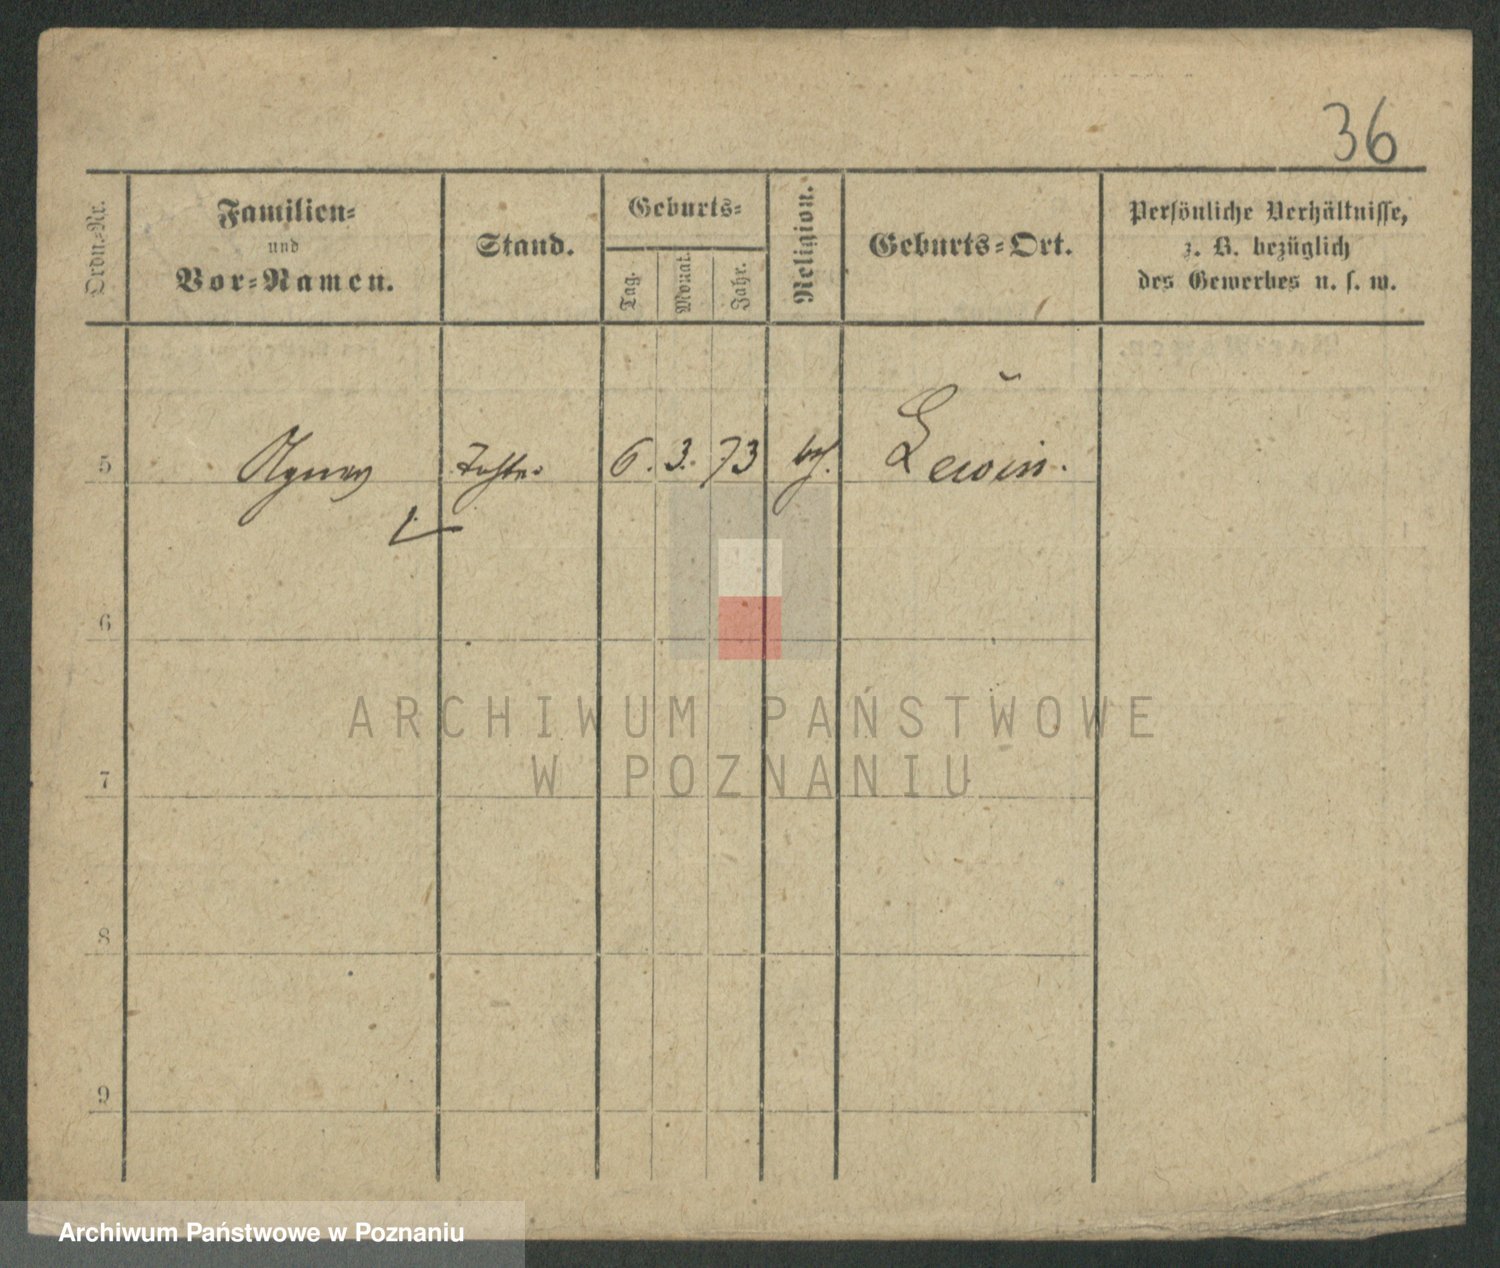 36
Ordn.-Nr.
Familien-
und
Vor-Namen.
Stand.
Geburts-
Tag.
Monat.
Jahr.
Religion.
Geburts-Ort.
Persönliche Verhältnisse,
z. B. bezüglich
des Gewerbes u. s. w.
5 Agnes Tochter 6. 3. 73 Lewin.
6
7
8
9
ARCHIWUM PAŃSTWOWE
W POZNANIU
Archiwum Państwowe w Poznaniu